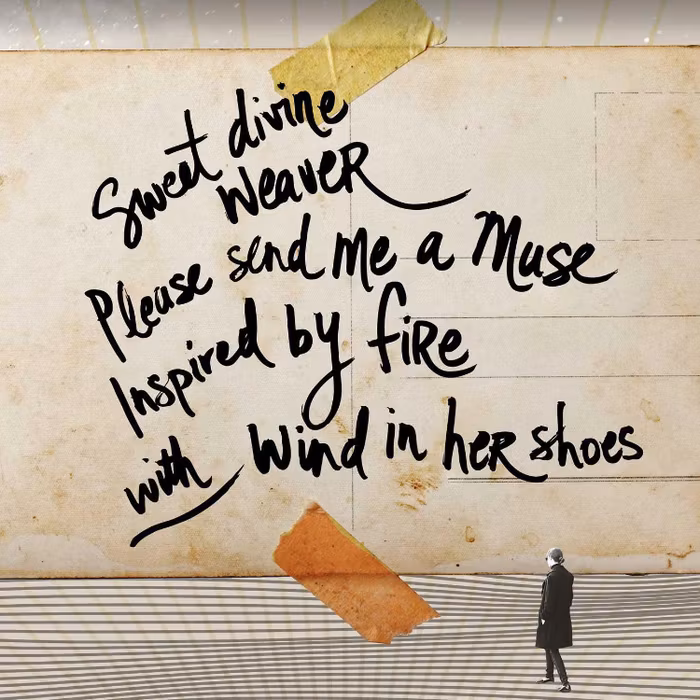 Sweet divine
Weaver
Please send me a Muse
Inspired by fire
with Wind in her shoes